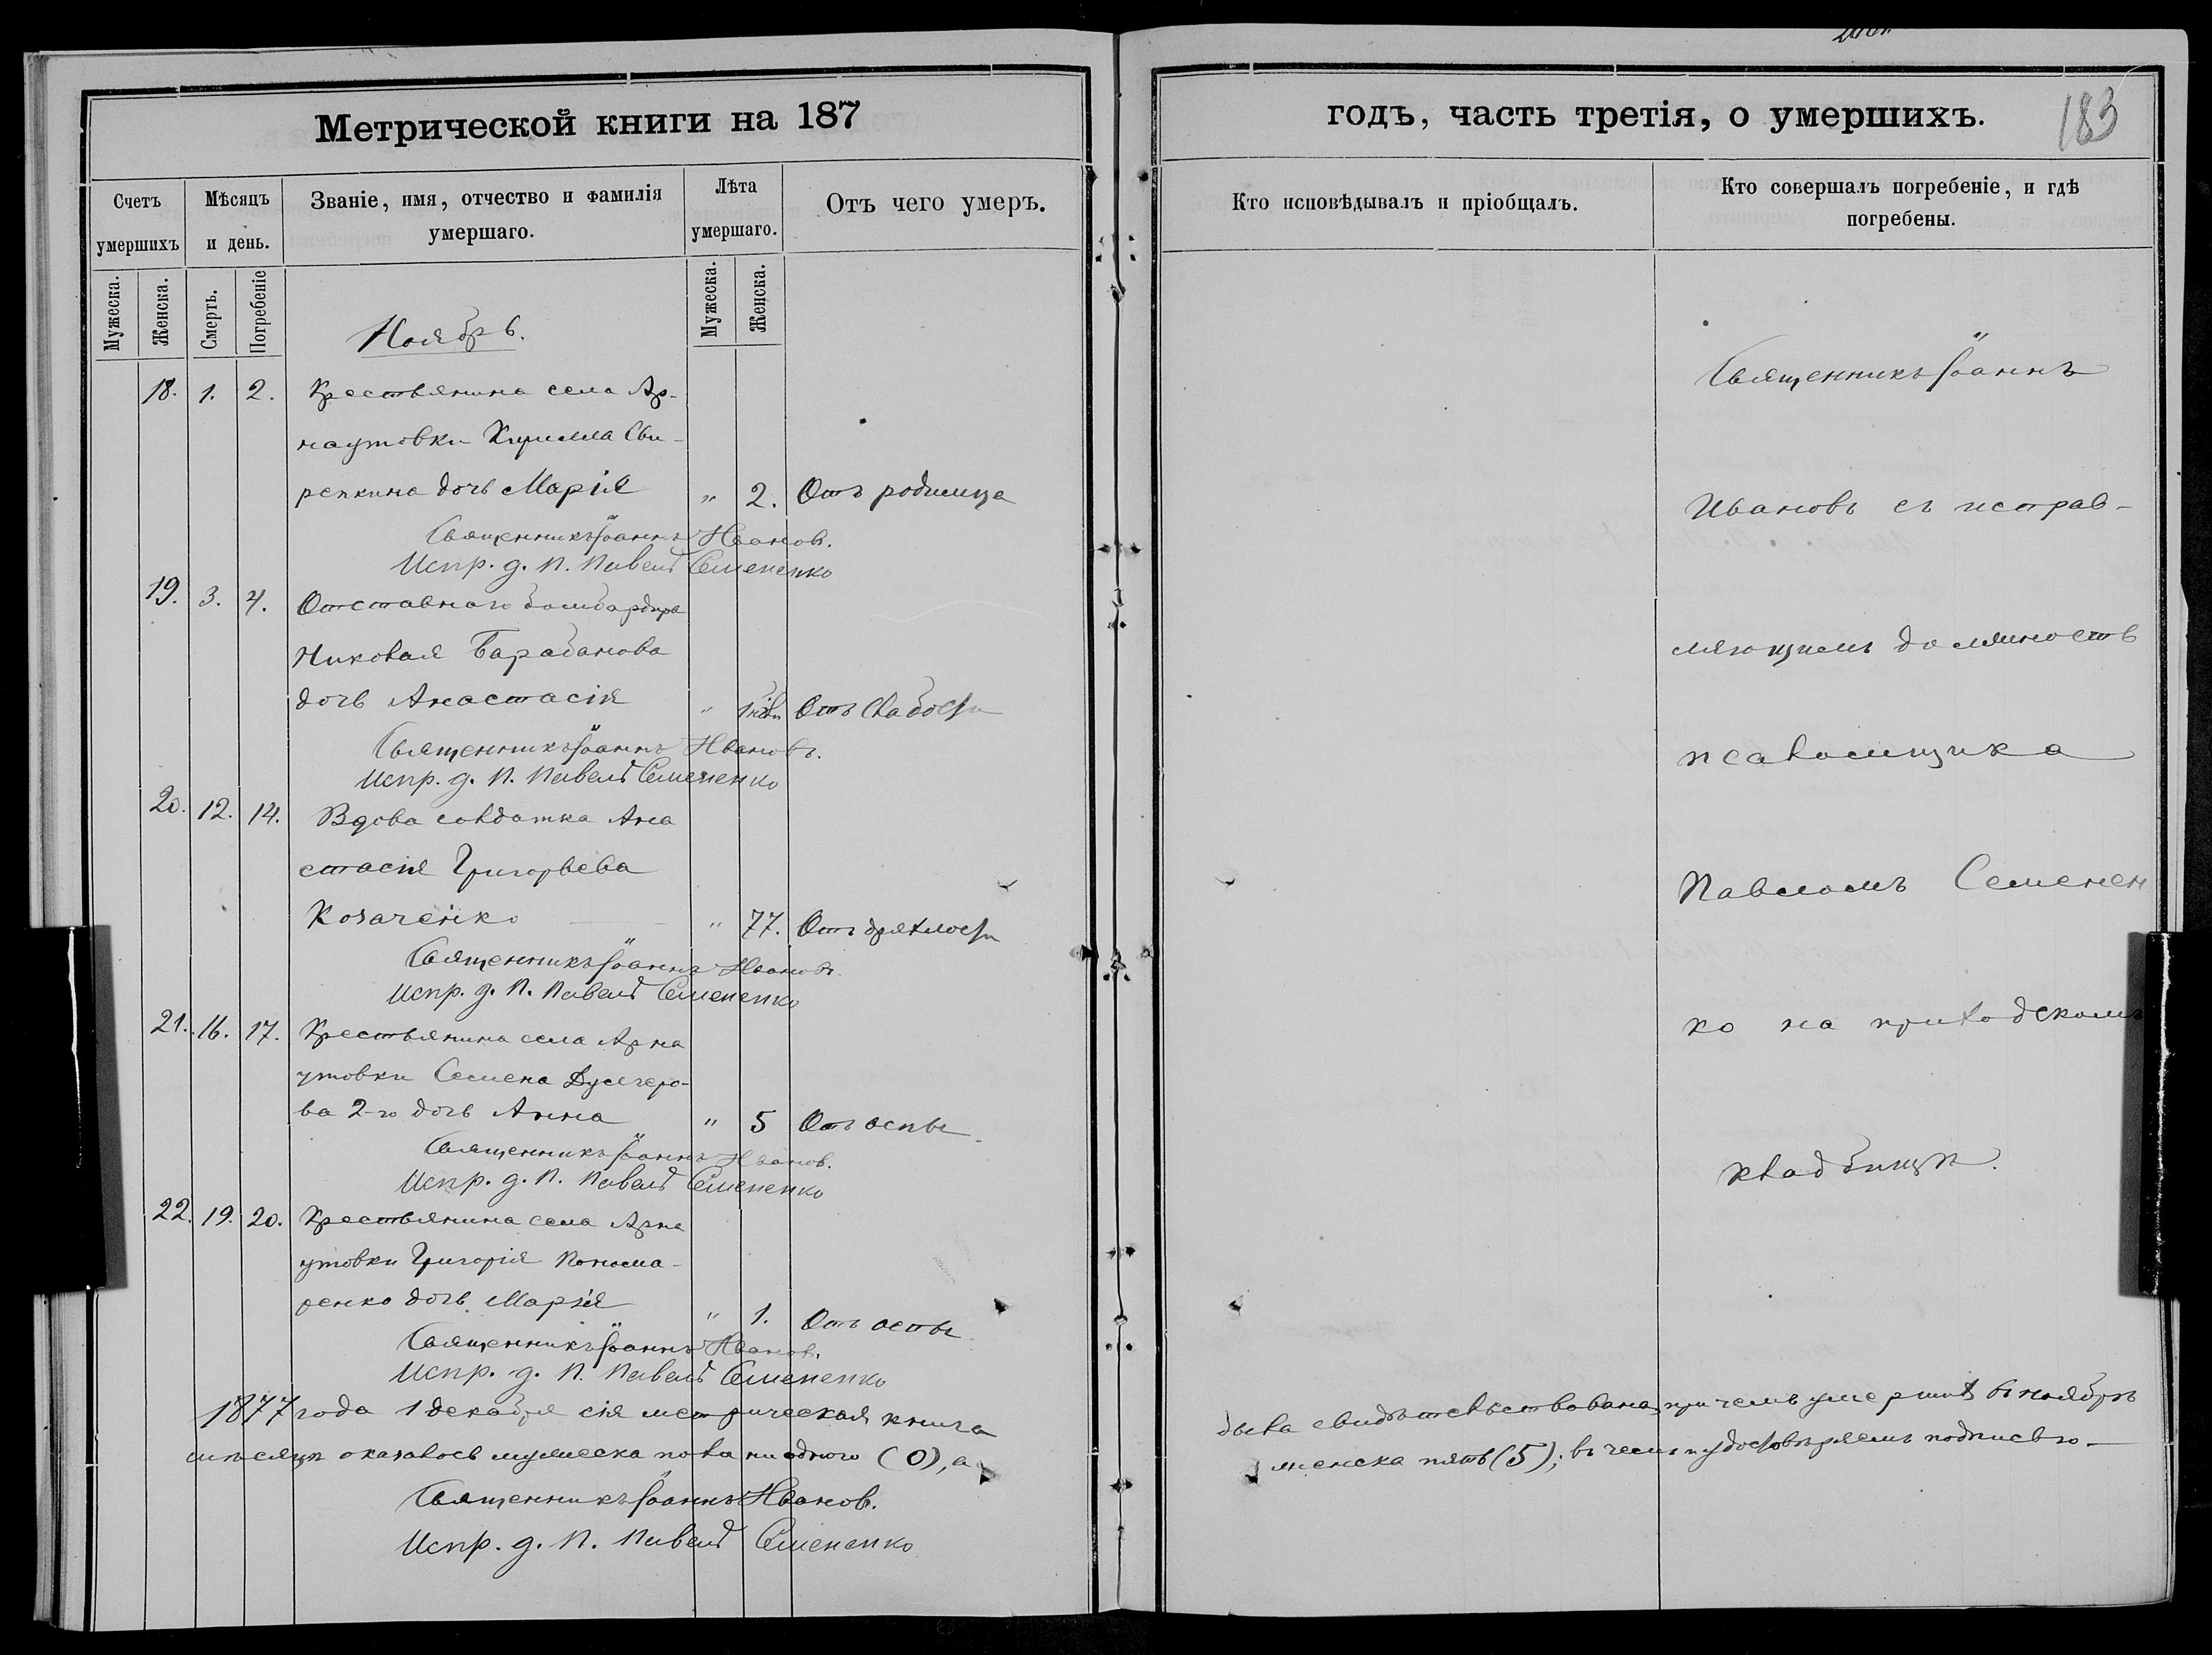 Метрической книги на 187
годъ, часть третія, о умершихъ.
183
Счетъ умершихъ
Мѣсяцъ и день.
Званіе, имя, отчество и фамилія умершаго.
Лѣта умершаго.
Отъ чего умеръ.
Кто исповѣдывалъ и пріобщалъ.
Кто совершалъ погребеніе, и гдѣ погребены.
Мужеска.
Женска.
Смерть.
Погребеніе
Мужеска.
Женска.
Ноябрь.
18. 1. 2. Крестьянина села Ар-
наутовки Кирилла Сви-
репкина дочь Марія " 2. Отъ родимца
Священникъ Іоаннъ Ивановъ.
Испр. д. П. Павелъ Семененко
19. 3. 4. Отставнаго бомбардира
Николая Барабанова
дочь Анастасія " Отъ слабости
Священникъ Іоаннъ Ивановъ.
Испр. д. П. Павелъ Семененко
20. 12. 14. Вдова солдатка Ана
стасія Григорьева
Козаченко " 77. Отъ дряхлости
Священникъ Іоаннъ Ивановъ.
Испр. д. П. Павелъ Семененко
21. 16. 17. Крестьянина села Арна
утовки Семена Дулгеро-
ва 2-го дочь Анна " 5 Отъ оспы
Священникъ Іоаннъ Ивановъ.
Испр. д. П. Павелъ Семененко
22. 19. 20. Крестьянина села Арна
утовки Григорія Понома-
ренко дочь Марія " 1. Отъ оспы
Священникъ Іоаннъ Ивановъ.
Испр. д. П. Павелъ Семененко
Священникъ Іоаннъ
Ивановъ съ исправ-
ляющимъ должность
псаломщика
Павломъ Семенен
ко на приходскомъ
кладбищѣ.
1877 года 1 декабря сія метрическая книга была свидѣтельствована, при чемъ умершихъ въ ноябрѣ
мѣсяцѣ оказалось мужеска пола ни одного (0), а женска пять (5); въ чемъ и удостовѣряемъ подписью
Священникъ Іоаннъ Ивановъ.
Испр. д. П. Павелъ Семененко